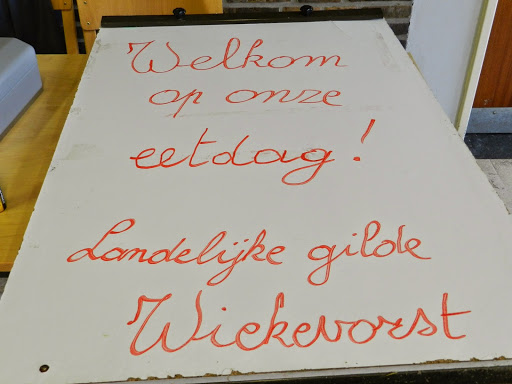 Welkom
op onze
eetdag!
Landelijke gilde
Wiekevorst